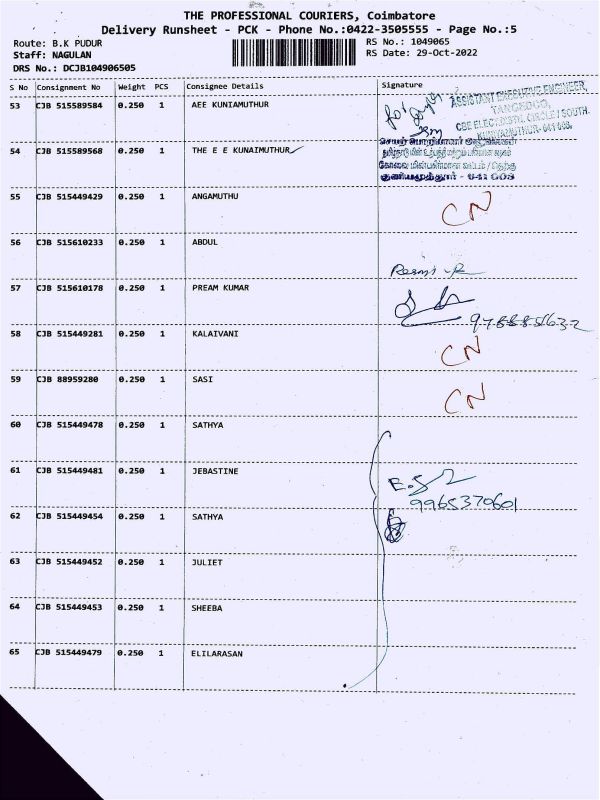 THE PROFESSIONAL COURIERS, Coimbatore
Delivery Runsheet - PCK - Phone No.:0422-3505555 - Page No.:5
Route: B.K PUDUR
RS No.: 1049065
Staff: NAGULAN
RS Date: 29-Oct-2022
DRS No.: DCJB104906505
S No Consignment No Weight PCS Consignee Details Signature
53 CJB 515589584 0.250 1 AEE KUNIAMUTHUR
ASSISTANT EXECUTIVE ENGINEER,
TANGEDCO,
CBE ELEC. DISTN. CIRCLE / SOUTH.
KUNIYAMUTHUR-641 008.
54 CJB 515589568 0.250 1 THE E E KUNAIMUTHUR
55 CJB 515449429 0.250 1 ANGAMUTHU CN
56 CJB 515610233 0.250 1 ABDUL
57 CJB 515610178 0.250 1 PREAM KUMAR
58 CJB 515449281 0.250 1 KALAIVANI CN
59 CJB 88959280 0.250 1 SASI CN
60 CJB 515449478 0.250 1 SATHYA
61 CJB 515449481 0.250 1 JEBASTINE
9965370601
62 CJB 515449454 0.250 1 SATHYA
63 CJB 515449452 0.250 1 JULIET
64 CJB 515449453 0.250 1 SHEEBA
65 CJB 515449479 0.250 1 ELILARASAN